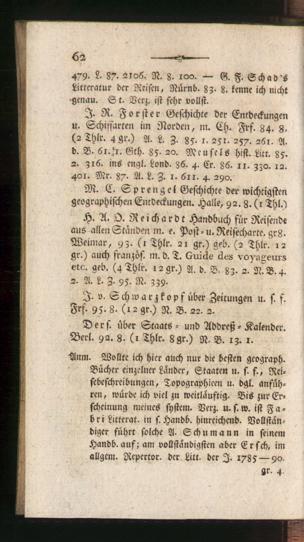 62
479. L. 87. 2106. N. 8. 100. — G. F. Schad's
Litteratur der Reisen, Nürnb. 83. 8. kenne ich nicht
genau. St. Verz. ist sehr vollst.
J. R. Forster Geschichte der Entdeckungen
u. Schiffarten im Norden, m. Ch. Frf. 84. 8.
(2 Thlr. 4 gr.) A. L. Z. 85. 1. 251. 257. 261. A.
d. B. 61. 1. Gth. 85. 20. Meusels hist. Litt. 85.
2. 316. ins engl. Lond. 86. 4. Cr. 86. 11. 330. 12.
401. Mr. 87. A. L. Z. 1. 611. 4. 290.
M. C. Sprengel Geschichte der wichtigsten
geographischen Entdeckungen. Halle, 92. 8. (1 Thl.)
H. A. O. Reichardt Handbuch für Reisende
aus allen Ständen m. e. Post- u. Reisecharte. gr8.
Weimar, 93. (1 Thlr. 21 gr.) geb. (2 Thlr. 12
gr.) auch französ. m. d. T. Guide des voyageurs
etc. geb. (4 Thlr. 12 gr.) A. d. B. 83. 2. N. B. 4.
2. A. L. Z. 95. N. 339.
J. v. Schwarzkopf über Zeitungen u. s. f.
Frf. 95. 8. (12 gr.) N. B. 22. 2.
Ders. über Staats- und Addreß-Kalender.
Berl. 92. 8. (1 Thlr. 8 gr.) N. B. 13. 1.
Anm. Wollte ich hier auch nur die besten geograph.
Bücher einzelner Länder, Staaten u. s. f., Rei-
sebeschreibungen, Topographieen u. dgl. anfüh-
ren, würde ich viel zu weitläuftig. Bis zur Er-
scheinung meines system. Verz. u. s. w. ist Fa-
bri Litterat. in s. Handb. hinreichend. Vollstän-
diger führt solche A. Schumann in seinem
Handb. auf; am vollständigsten aber Ersch, im
allgem. Repertor. der Litt. der J. 1785—90.
gr. 4.